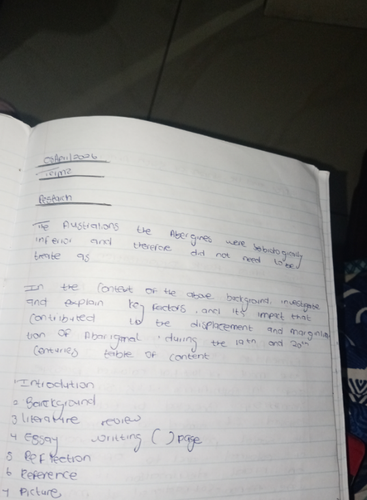 April 2026
Research
The Australians the Aborigines were biologically
inferior and therefore did not need to be
treate as
In the context of the above background investigate
and explain key factors and its impact that
contributed to the displacement and marginliza
tion of Aboriginal during the 19th and 20th
centuries table of content
1 Introdution
2 Background
3 literature review
4 Essay writting ( ) page
5 Reflection
6 Reference
7 Picture